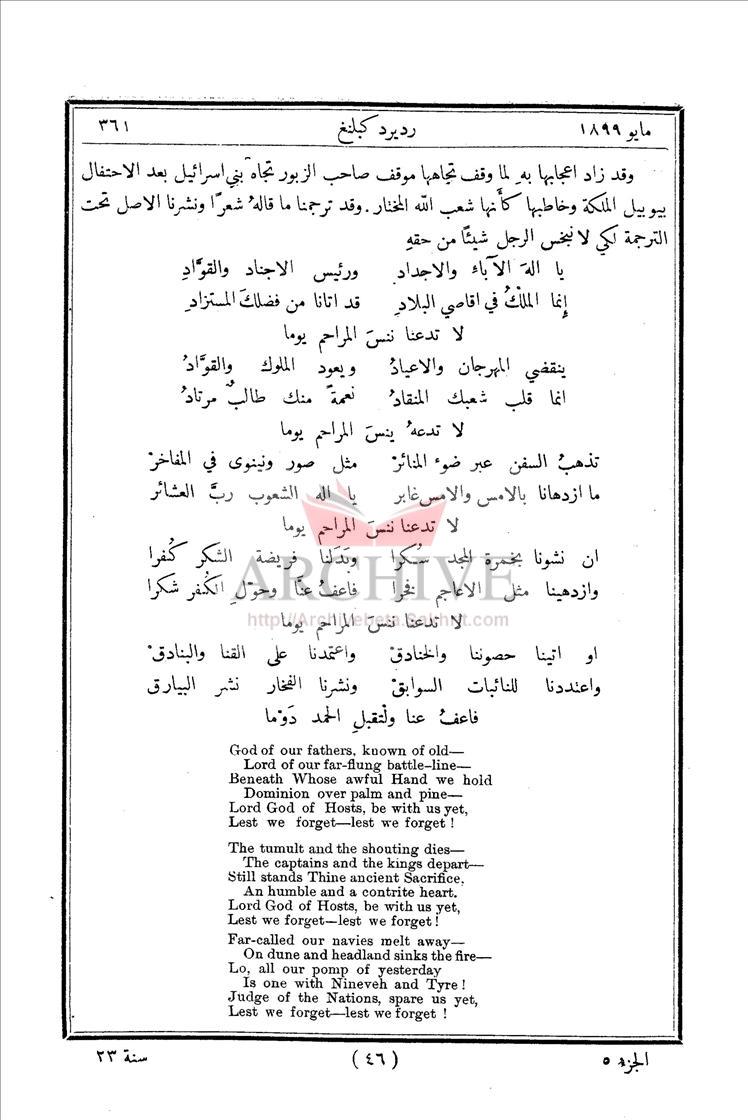 مايو ١٨٩٩ رديرد كبلنغ ٣٦١
وقد زاد اعجابها بهِ لما وقف تجاهها موقف صاحب الزبور تجاه بني اسرائيل بعد الاحتفال
بيوبيل الملكة وخاطبها كأنها شعب الله المختار. وقد ترجمنا ما قالهُ شعرًا ونشرنا الاصل تحت
الترجمة لكي لا نبخس الرجل شيئًا من حقهِ
يا الهَ الآباء والاجدادِ ورئيس الاجناد والقوَّادِ
إنما الملكُ في اقاصي البلادِ قد اتانا من فضلكَ المستزادِ
لا تدعنا ننسَ المراحم يوما
ينقضي المهرجان والاعيادُ ويعود الملوك والقوَّادُ
انما قلب شعبك المنقادُ نعمةً منك طالبٌ مرتادُ
لا تدعهُ ينسَ المراحم يوما
تذهبُ السفن عبر ضوء المنائرْ مثل صور ونينوى في المفاخرْ
ما ازدهانا بالامس والامس غابر يا اله الشعوب ربَّ العشائر
لا تدعنا ننسَ المراحم يوما
ان نشونا بخمرة المجد سُكرا وبَدَلنا فريضة الشكر كُفرا
وازدهينا مثل الاعاجم فخرا فاعفُ عنَّا وحوّلِ الكُفر شكرا
لا تدعنا ننسَ المراحم يوما
او اتينا حصوننا والخنادقْ واعتمدنا على القنا والبنادقْ
واعتددنا للنائبات السوابقْ ونشرنا الفخار نشر البيارق
فاعفُ عنا ولْتقبلِ الحمد دَوْما
God of our fathers, known of old—
Lord of our far-flung battle-line—
Beneath Whose awful Hand we hold
Dominion over palm and pine—
Lord God of Hosts, be with us yet,
Lest we forget—lest we forget !
The tumult and the shouting dies—
The captains and the kings depart—
Still stands Thine ancient Sacrifice,
An humble and a contrite heart.
Lord God of Hosts, be with us yet,
Lest we forget—lest we forget !
Far-called our navies melt away—
On dune and headland sinks the fire—
Lo, all our pomp of yesterday
Is one with Nineveh and Tyre !
Judge of the Nations, spare us yet,
Lest we forget—lest we forget !
الجزء ٥ (٤٦) سنة ٢٣
ARCHIVE
http://Archivebeta.Sakhrit.com